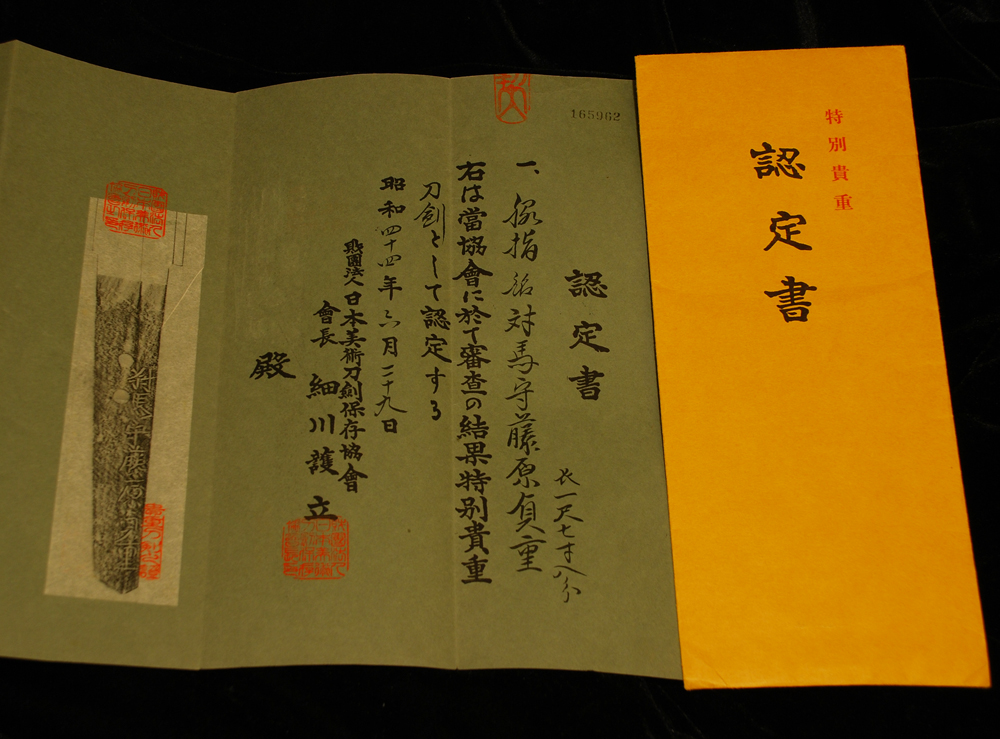 特別貴重
認定書
165962
認定書
長一尺七寸八分
一、脇指 銘対馬守藤原貞重
右は當協會に於て審査の結果特別貴重
刀剣として認定する
昭和四十四年六月二十九日
財團法人日本美術刀劍保存協會
會長 細川護立
殿
対馬守藤原貞重